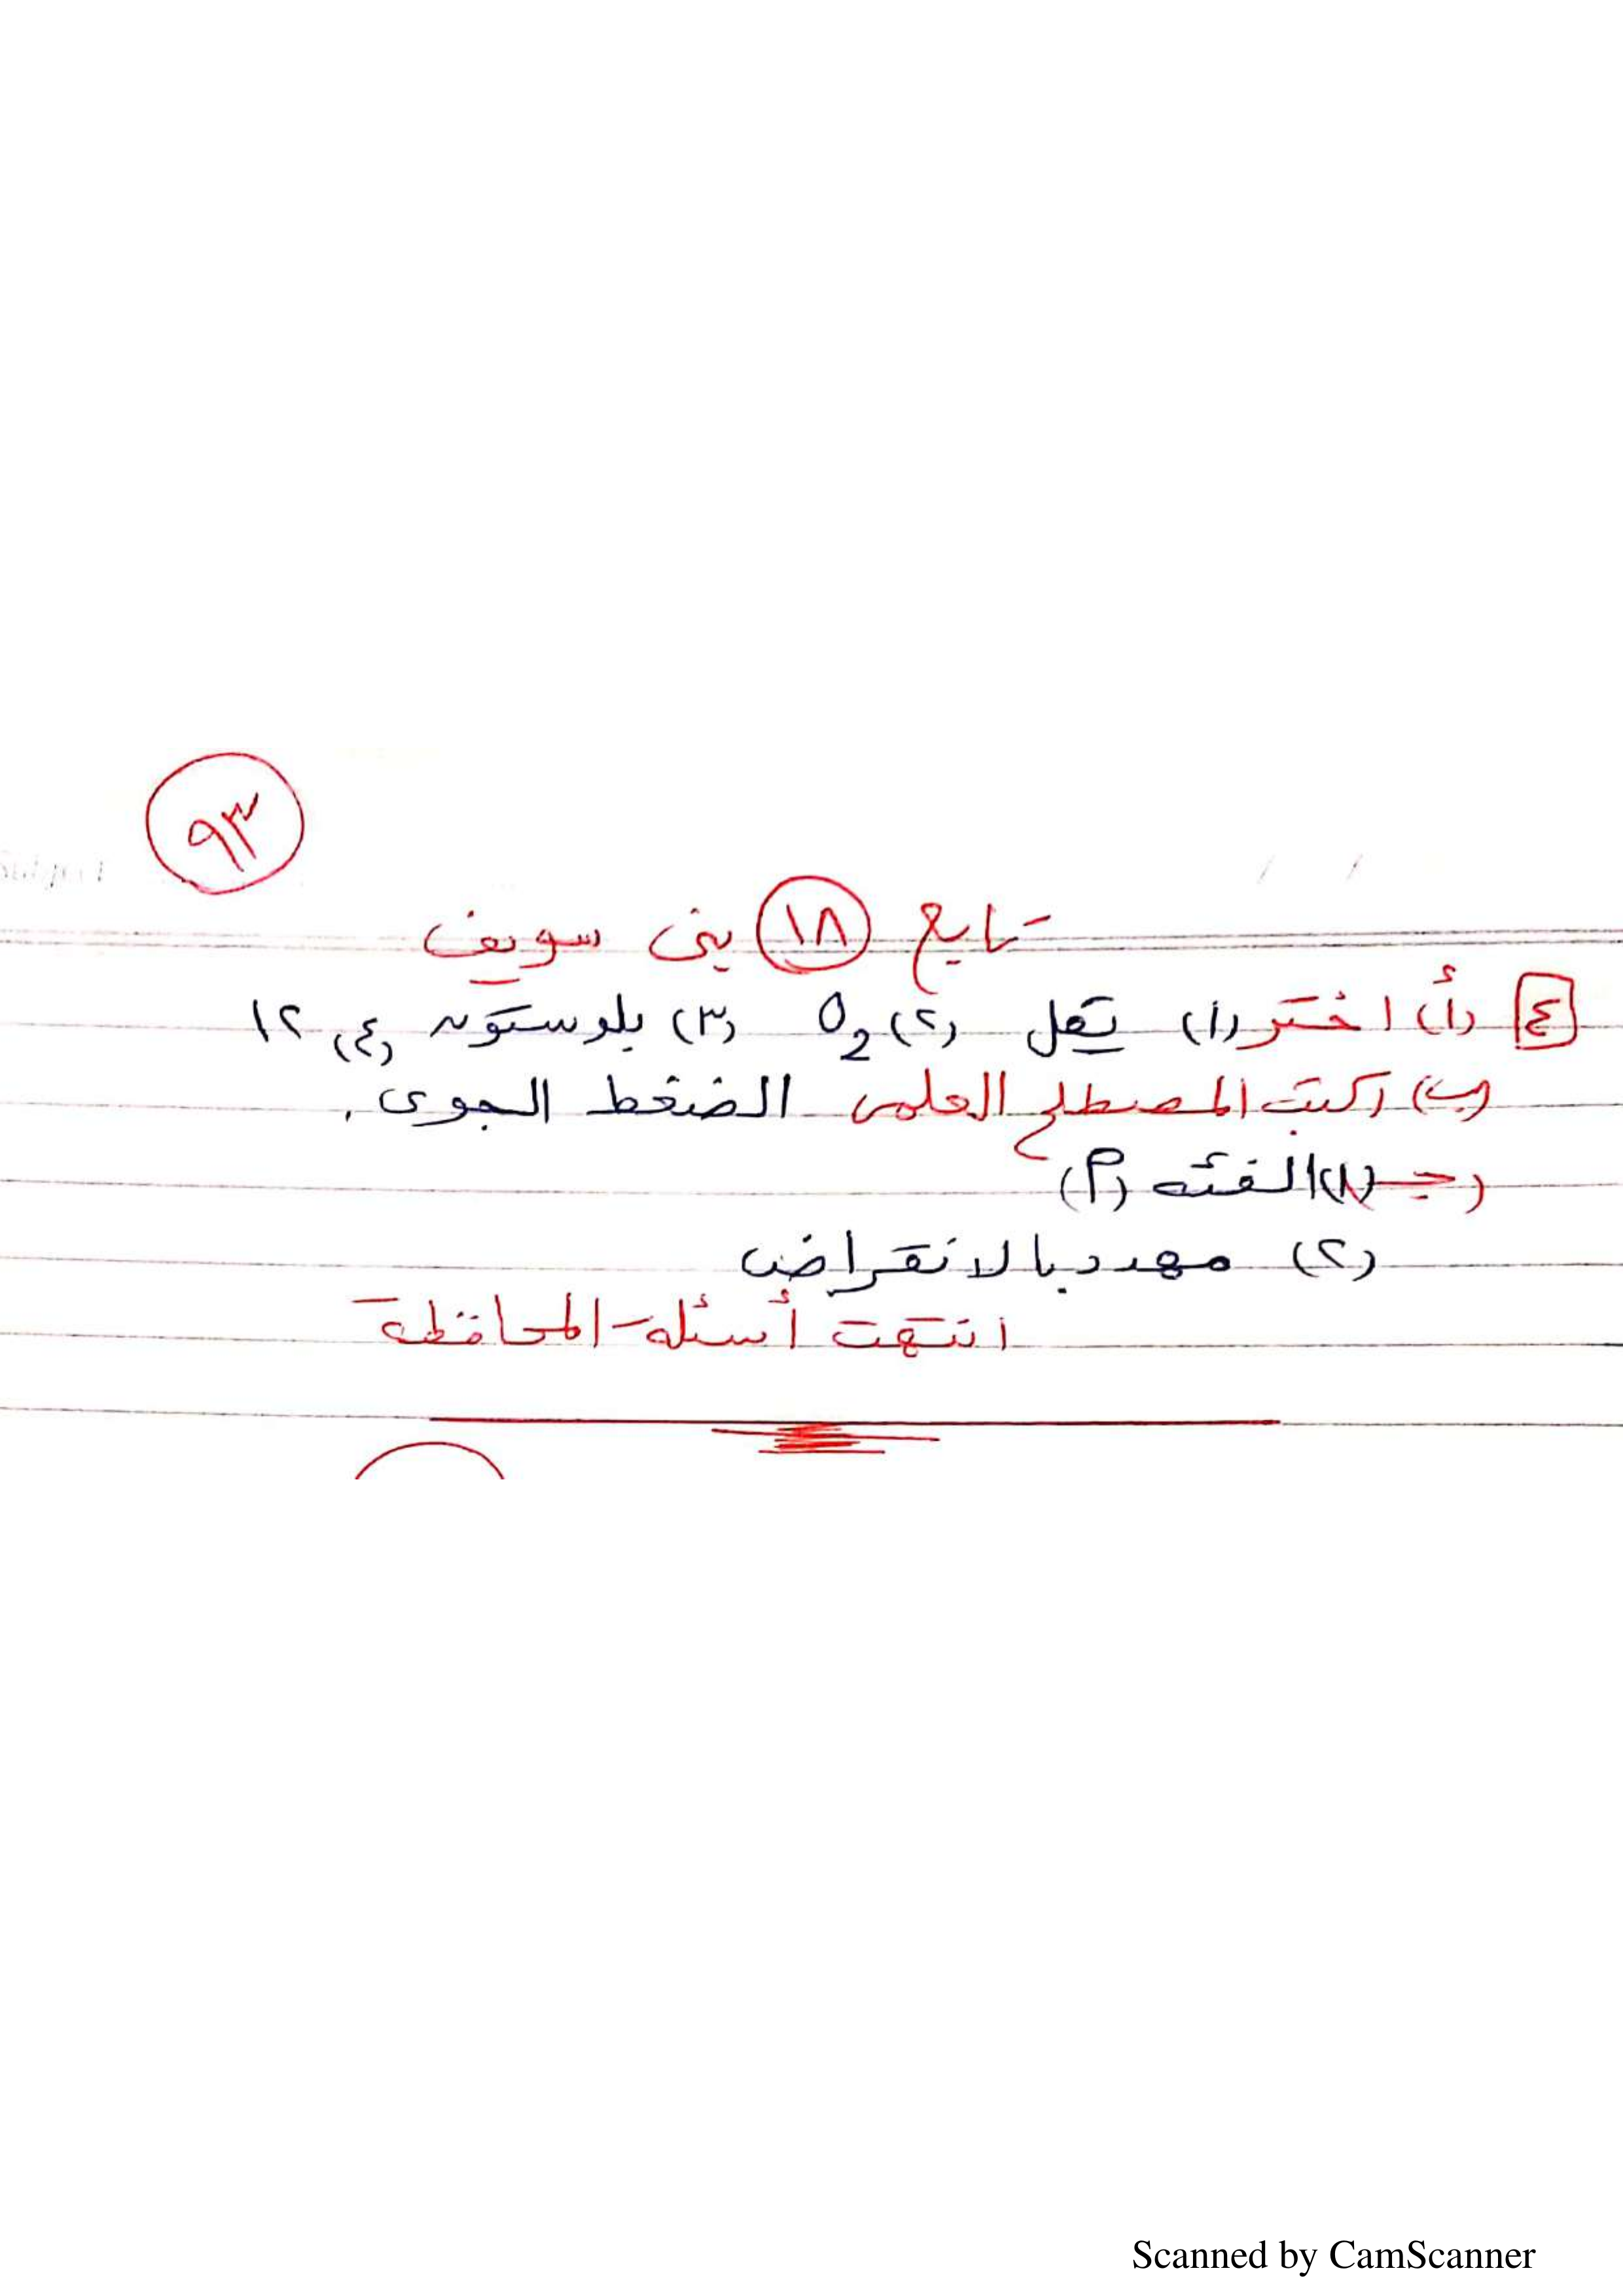 ٩٣
تابع ١٨ بنى سويف
٤ (أ) اختر (١) تقل (٢) O2 (٣) يلوستون (٤) ١٢
(ب) اكتب المصطلح العلمى الضغط الجوى.
(جـ) (١) الفئه (م)
(٢) مهدد بالانقراض
انتهت أسئله المحافظة
Scanned by CamScanner